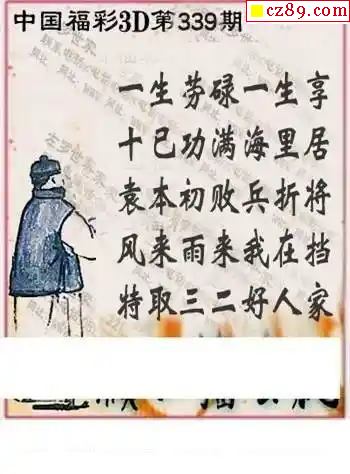 cz89.com
中国福彩3D第339期
一生劳碌一生享
十已功满海里居
袁本初败兵折将
风来雨来我在挡
特取三二好人家